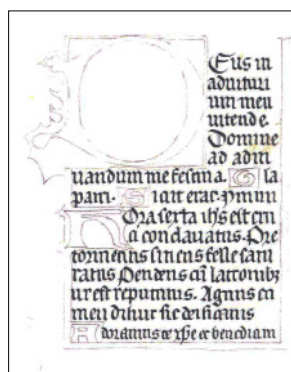 Eus in
adiutori
um meu
intende.
Domine
ad adiu
uandum me festina. Gla
patri. Sicut erat. Ymnus
Hora sexta ihs est cru
ci conclauatus. Pre
tormentis sitiens felle satu
ratus Pendens cu latronibz
est reputatus. Agnus
meu
Adoramus te xpe et benediam